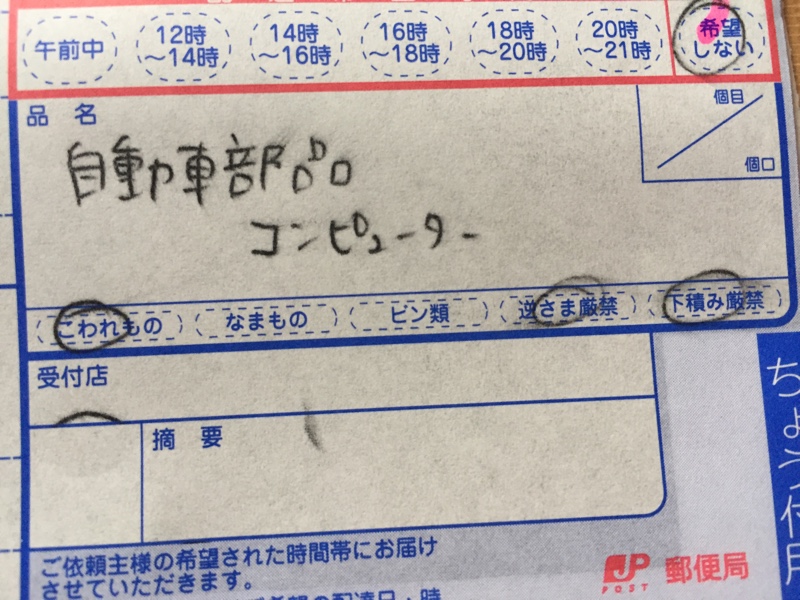 午前中
12時～14時
14時～16時
16時～18時
18時～20時
20時～21時
希望しない
品名
個目
個口
自動車部品
コンピューター
こわれもの
なまもの
ビン類
逆さま厳禁
下積み厳禁
受付店
摘要
ちょう付用
ご依頼主様の希望された時間帯にお届け
させていただきます。
ご希望の配達日・時
JP
POST
郵便局